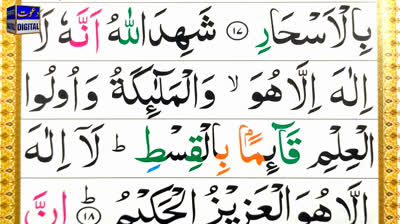 دعوت
DIGITAL
بِالۡاَسۡحَارِ ۱۷ شَهِدَ اللّٰهُ اَنَّهٗ لَاۤ
اِلٰهَ اِلَّا هُوَ ۙ وَالۡمَلٰٓئِكَةُ وَاُولُوا
الۡعِلۡمِ قَآئِمًا ۢ بِالۡقِسۡطِ ؕ لَاۤ اِلٰهَ
اِلَّا هُوَ الۡعَزِيۡزُ الۡحَكِيۡمُ ؕ ۱۸ اِنَّ